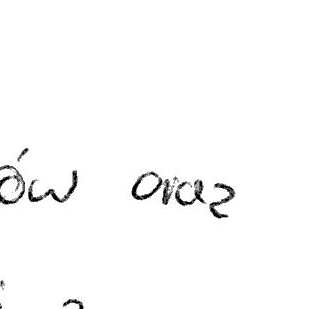 ów oraz